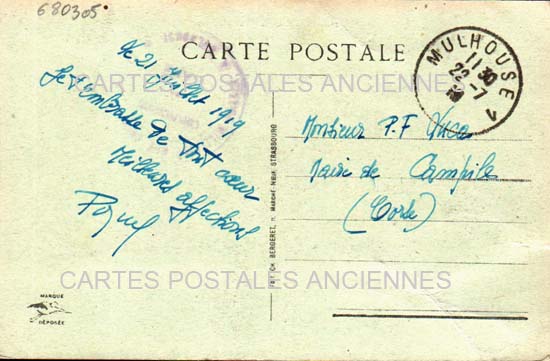 680305
CARTE POSTALE
MULHOUSE
11 30
22-7
Le 21 Juillet 1919
Je t'embrasse de tout cœur
Meilleures affections
Monsieur P. F.
Mairie de Campile
(Corse)
CH. BERGERET, MARCHÉ-NEUF, STRASBOURG
CARTES POSTALES ANCIENNES
MARQUE
DÉPOSÉE